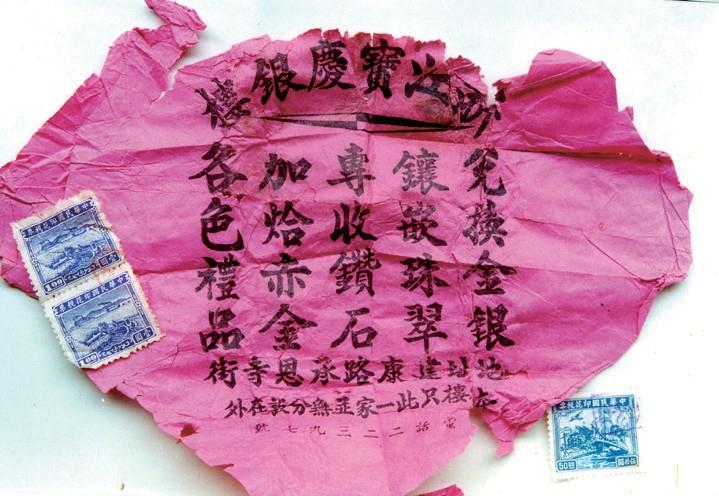 寶慶銀樓
兌換金銀
鑲嵌珠翠
專收鑽石
加烚赤金
各色禮品
地址建康路承恩寺街
樓只此一家並無分設在外
電話二二三九七號
中華民國印花稅票
100
中華民國印花稅票
100
中華民國印花稅票
50